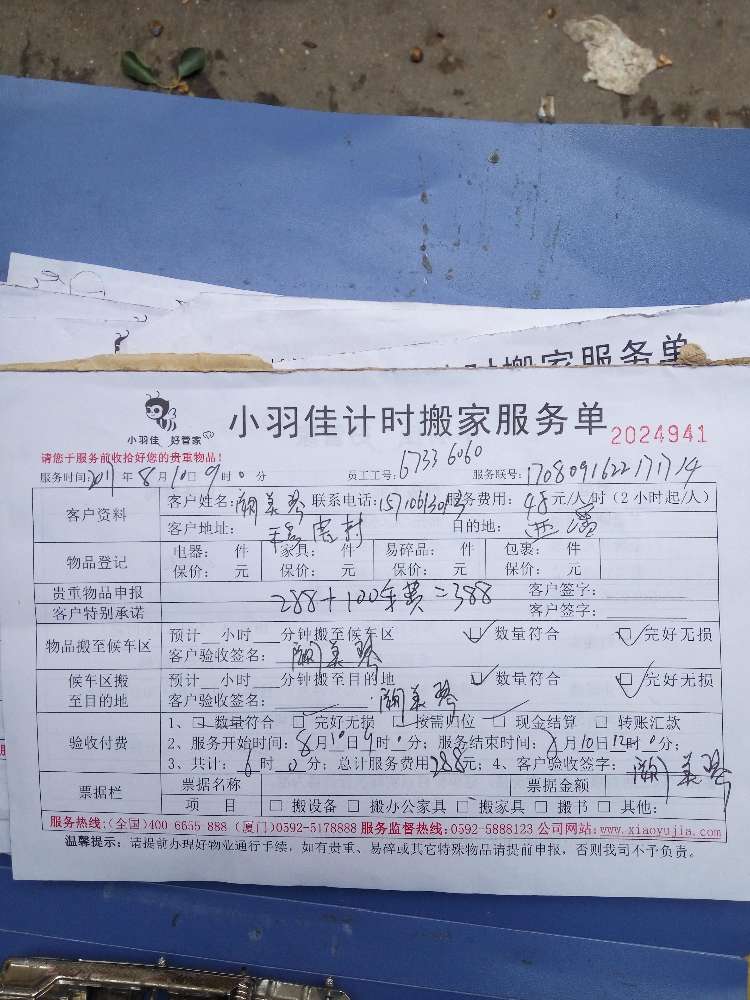 时搬家服务单
小羽佳 好管家
小羽佳计时搬家服务单
2024941
请您于服务前收拾好您的贵重物品！
服务时间:2017年8月10日9时0分 员工工号:6733 6060 服务联号:1708091622171714
客户资料
客户姓名: 美琴 联系电话: 服务费用: 48元/人/时（2小时起/人）
客户地址: 村 目的地:
物品登记
电器: 件 家具: 件 易碎品: 件 包裹: 件
保价: 元 保价: 元 保价: 元 保价: 元
贵重物品申报 客户签字:
288+100车费=388
客户特别承诺 客户签字:
物品搬至候车区
预计__小时__分钟搬至候车区 数量符合 完好无损
客户验收签名: 美琴
候车区搬至目的地
预计__小时__分钟搬至目的地 数量符合 完好无损
客户验收签名: 美琴
验收付费
1、数量符合 完好无损 按需归位 现金结算 转账汇款
2、服务开始时间: 8月10日9时0分; 服务结束时间: 8月10日12时0分;
3、共计: 6时0分; 总计服务费用288元; 4、客户验收签字: 美琴
票据栏
票据名称 票据金额
项 目 搬设备 搬办公家具 搬家具 搬书 其他:
服务热线:(全国)400 6655 888 (厦门)0592-5178888 服务监督热线:0592-5888123 公司网站:www.xiaoyujia.com
温馨提示: 请提前办理好物业通行手续, 如有贵重、易碎或其它特殊物品请提前申报, 否则我司不予负责。